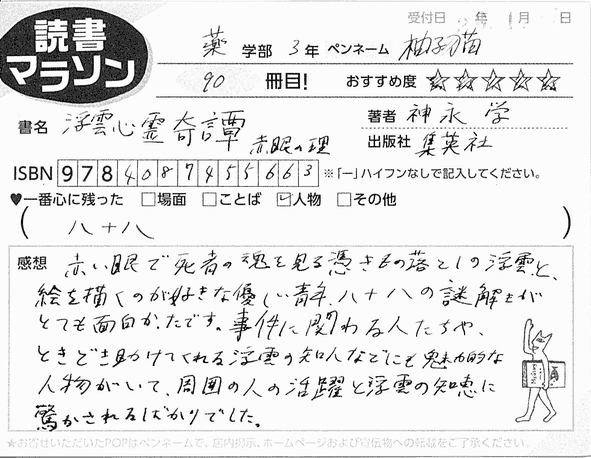 受付日 年 1月 日
読書
マラソン
薬 学部 3年 ペンネーム 柚子猫
90 冊目! おすすめ度 ☆☆☆☆☆
書名 浮雲心霊奇譚 赤眼の理
著者 神永 学
出版社 集英社
ISBN 9784087455663 ※「-」ハイフンなしで記入してください。
♥一番心に残った □場面 □ことば ☑人物 □その他
( 八十八 )
感想 赤い眼で死者の魂を見る憑きもの落としの浮雲と、
絵を描くのが好きな優しい青年、八十八の謎解きが
とても面白かったです。事件に関わる人たちや、
ときどき助けてくれる浮雲の知人などにも魅力的な
人物がいて、周囲の人の活躍と浮雲の知恵に
驚かされるばかりでした。
★お寄せいただいたPOPはペンネームで、店内掲示、ホームページおよび宣伝物への転載をご了承ください。